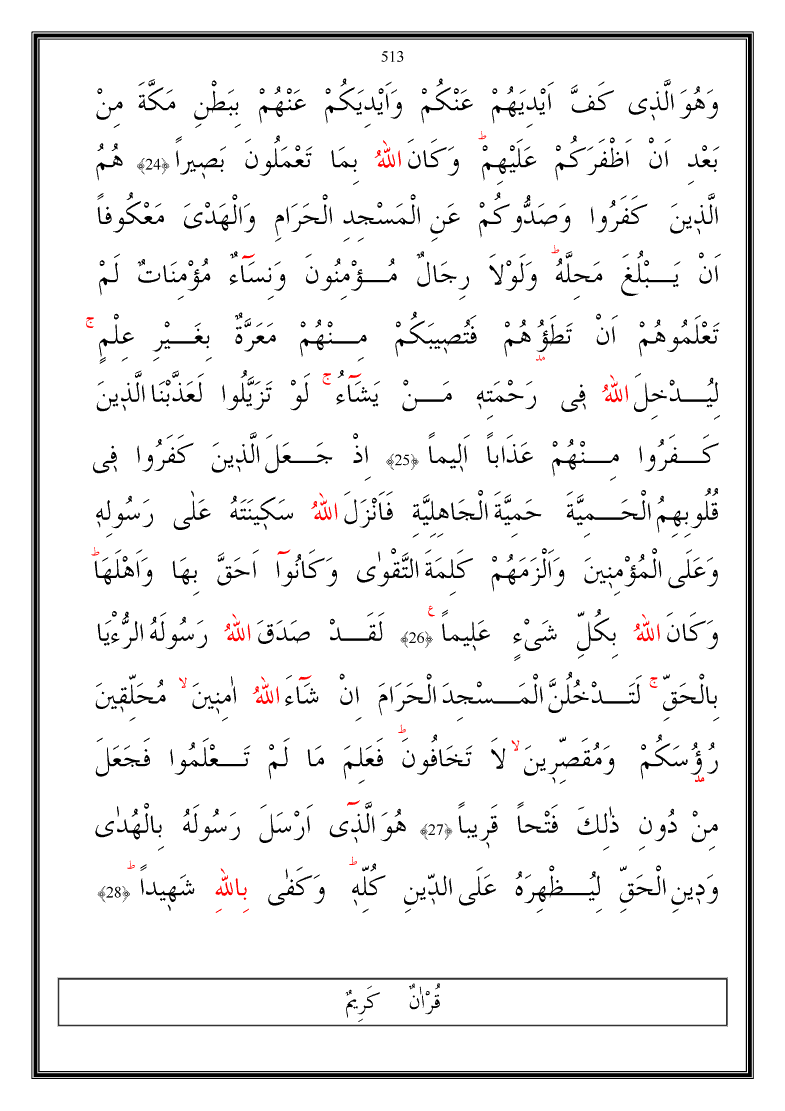 513
وَهُوَ الَّذٖى كَفَّ اَيْدِيَهُمْ عَنْكُمْ وَاَيْدِيَكُمْ عَنْهُمْ بِبَطْنِ مَكَّةَ مِنْ
بَعْدِ اَنْ اَظْفَرَكُمْ عَلَيْهِمْؕ وَكَانَ اللّٰهُ بِمَا تَعْمَلُونَ بَصٖيراً ﴿24﴾ هُمُ
الَّذٖينَ كَفَرُوا وَصَدُّوكُمْ عَنِ الْمَسْجِدِ الْحَرَامِ وَالْهَدْىَ مَعْكُوفاً
اَنْ يَـــبْلُغَ مَحِلَّهُؕ وَلَوْلَا رِجَالٌ مُـــؤْمِنُونَ وَنِسَٓاءٌ مُؤْمِنَاتٌ لَمْ
تَعْلَمُوهُمْ اَنْ تَطَؤُ۫هُمْ فَتُصٖيبَكُمْ مِـــنْهُمْ مَعَرَّةٌ بِغَـــيْرِ عِلْمٍۚ
لِيُـــدْخِلَ اللّٰهُ فٖى رَحْمَتِهٖ مَـــنْ يَشَٓاءُۚ لَوْ تَزَيَّلُوا لَعَذَّبْنَا الَّذٖينَ
كَـــفَرُوا مِـــنْهُمْ عَذَاباً اَلٖيماً ﴿25﴾ اِذْ جَـــعَلَ الَّذٖينَ كَفَرُوا فٖى
قُلُوبِهِمُ الْحَـــمِيَّةَ حَمِيَّةَ الْجَاهِلِيَّةِ فَاَنْزَلَ اللّٰهُ سَكٖينَتَهُ عَلٰى رَسُولِهٖ
وَعَلَى الْمُؤْمِنٖينَ وَاَلْزَمَهُمْ كَلِمَةَ التَّقْوٰى وَكَانُٓوا اَحَقَّ بِهَا وَاَهْلَهَاؕ
وَكَانَ اللّٰهُ بِكُلِّ شَىْءٍ عَلٖيماً ﴿26﴾ لَقَـــدْ صَدَقَ اللّٰهُ رَسُولَهُ الرُّءْيَا
بِالْحَقِّۚ لَتَـــدْخُلُنَّ الْمَـــسْجِدَ الْحَرَامَ اِنْ شَٓاءَ اللّٰهُ اٰمِنٖينَۙ مُحَلِّقٖينَ
رُؤُ۫سَكُمْ وَمُقَصِّرٖينَۙ لَا تَخَافُونَؕ فَعَلِمَ مَا لَمْ تَـــعْلَمُوا فَجَعَلَ
مِنْ دُونِ ذٰلِكَ فَتْحاً قَرٖيباً ﴿27﴾ هُوَ الَّذٖٓى اَرْسَلَ رَسُولَهُ بِالْهُدٰى
وَدٖينِ الْحَقِّ لِيُـــظْهِرَهُ عَلَى الدّٖينِ كُلِّهٖؕ وَكَفٰى بِاللّٰهِ شَهٖيداًؕ ﴿28﴾
قُرْاٰنٌ كَرِيمٌ